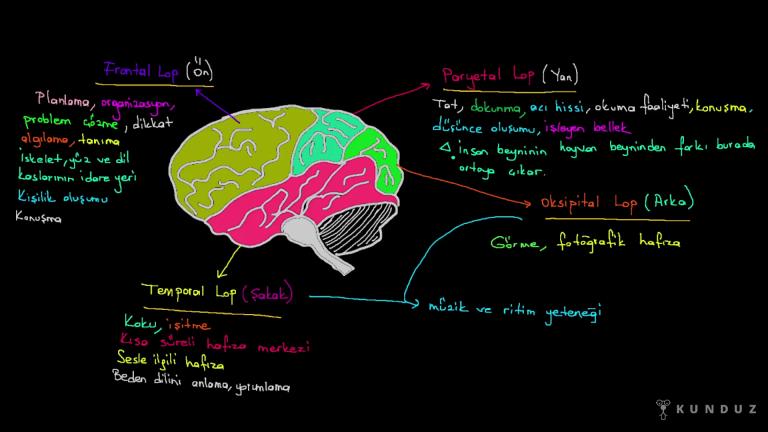 Frontal Lop (Ön)
Planlama, organizasyon,
problem çözme, dikkat
algılama, tanıma
iskelet, yüz ve dil
kaslarının idare yeri
Kişilik oluşumu
Konuşma
Paryetal Lop (Yan)
Tat, dokunma, acı hissi, okuma faaliyeti, konuşma,
düşünce oluşumu, işleyen bellek
insan beyninin hayvan beyninden farkı burada
ortaya çıkar.
Oksipital Lop (Arka)
Görme, fotoğrafik hafıza
Temporal Lop (Şakak)
Koku, işitme
Kısa süreli hafıza merkezi
Sesle ilgili hafıza
Beden dilini anlama, yorumlama
müzik ve ritim yeteneği
KUNDUZ